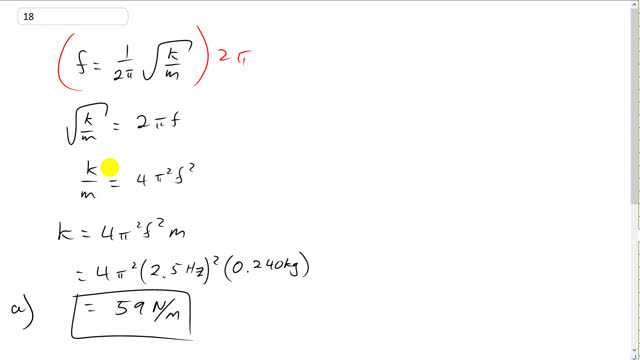 18
(f = 1/2π √(k/m)) 2π
√(k/m) = 2πf
k/m = 4π²f²
k = 4π²f²m
= 4π²(2.5 Hz)²(0.240kg)
a) = 59 N/m